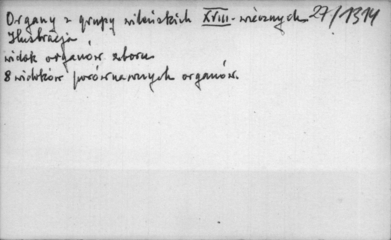 Organy z grupy wileńskich XVIII-wiecznych 27/1314
Ilustracja
widok organów zboru
8 widoków porównawczych organów.